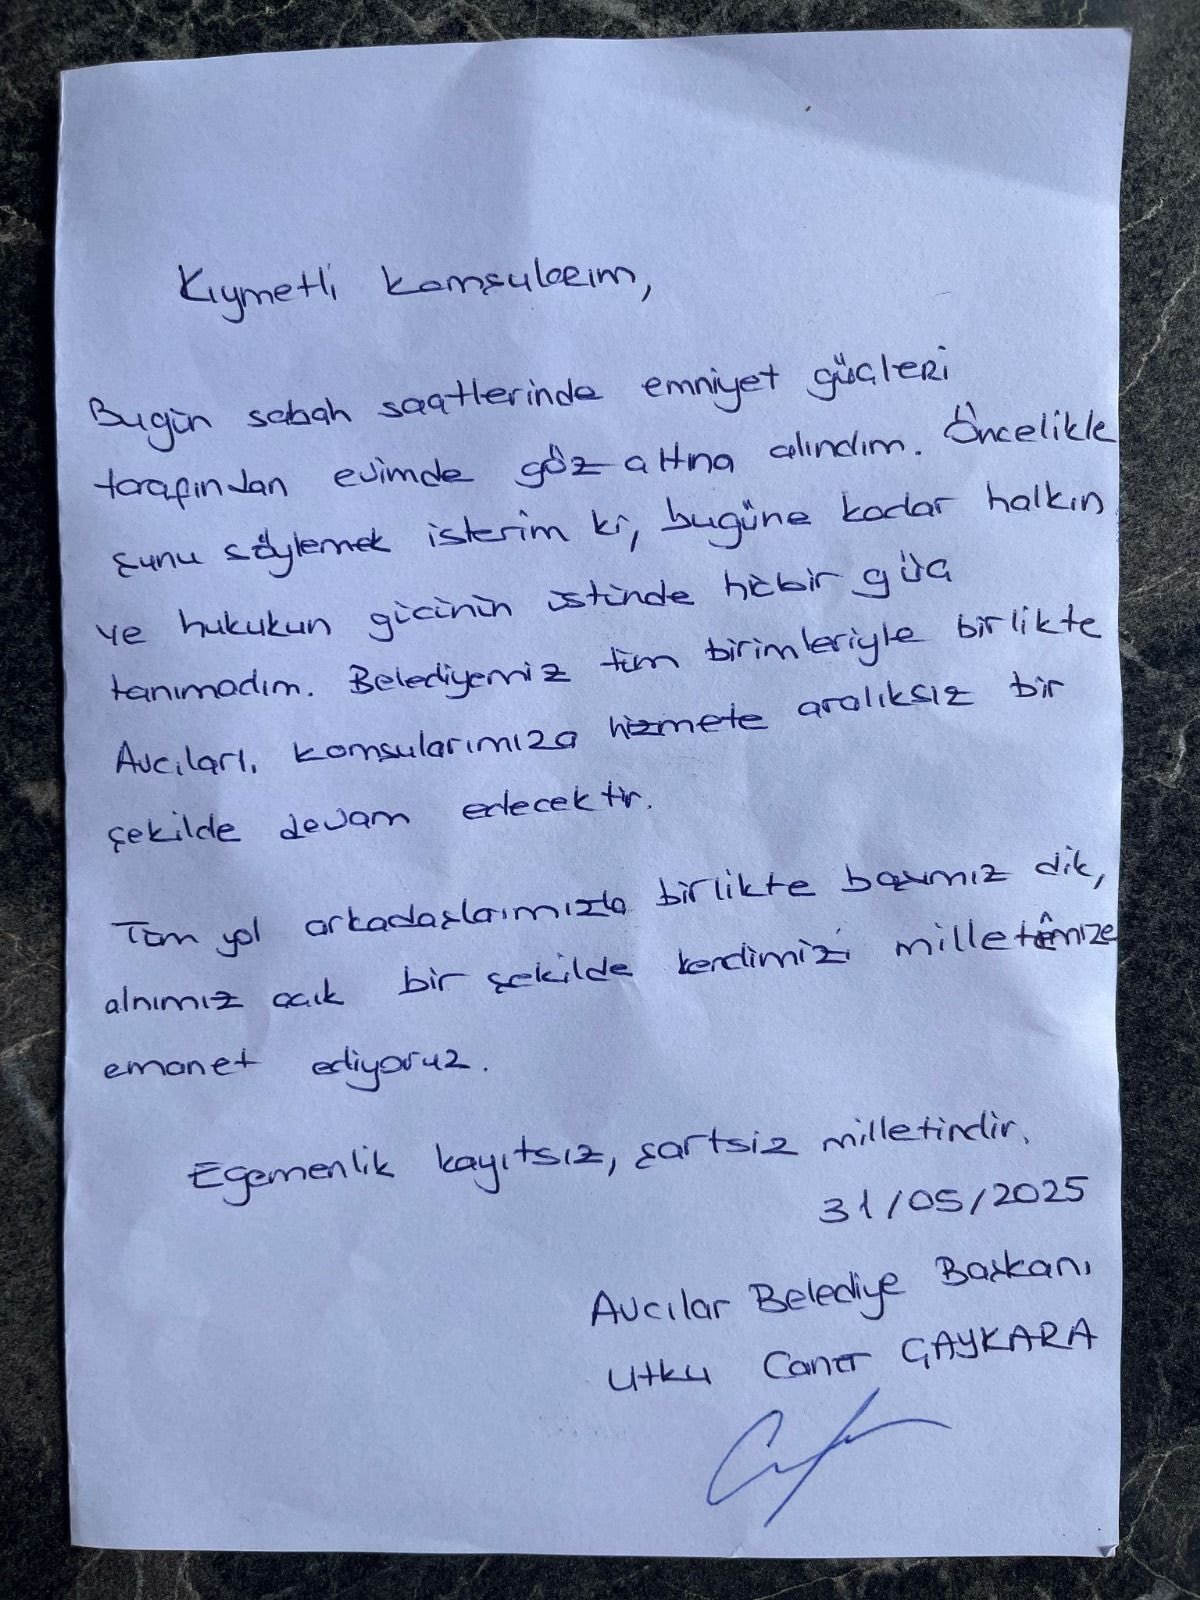 Kıymetli komşularım,
Bugün sabah saatlerinde emniyet güçleri
tarafından evimde göz altına alındım. Öncelikle
şunu söylemek isterim ki, bugüne kadar halkın
ve hukukun gücünün üstünde hiçbir güç
tanımadım. Belediyemiz tüm birimleriyle birlikte
Avcılar'ı, komşularımıza hizmete aralıksız bir
şekilde devam edecektir.
Tüm yol arkadaşlarımızla birlikte başımız dik,
alnımız açık bir şekilde kendimizi milletimize
emanet ediyoruz.
Egemenlik kayıtsız, şartsız milletindir.
31/05/2025
Avcılar Belediye Başkanı
Utku Caner ÇAYKARA